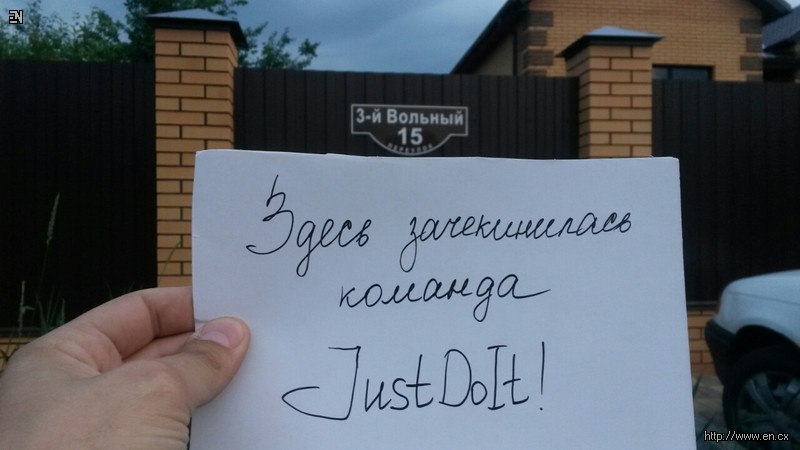 EN
3-й Вольный
15
переулок
Здесь зачекинилась
команда
JustDoIt!
http://www.en.cx